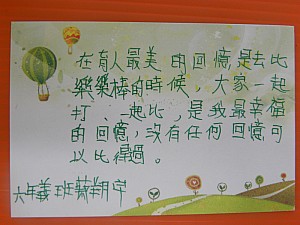 在育人最美的回憶是去比
樂樂棒的時候，大家一起
打、一起比，是我最幸福
的回憶，沒有任何回憶可
以比得過。
六年義班